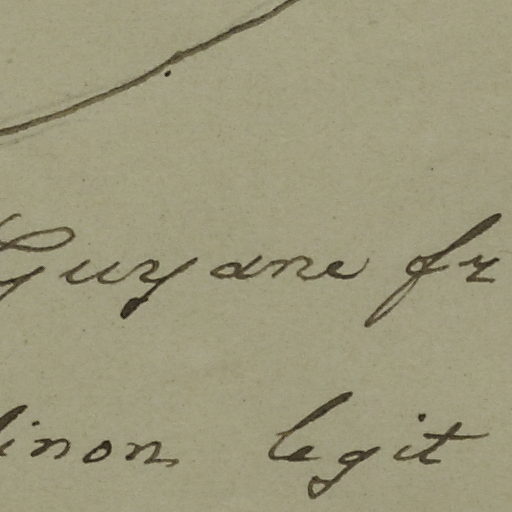 Guyane fr
linon legit